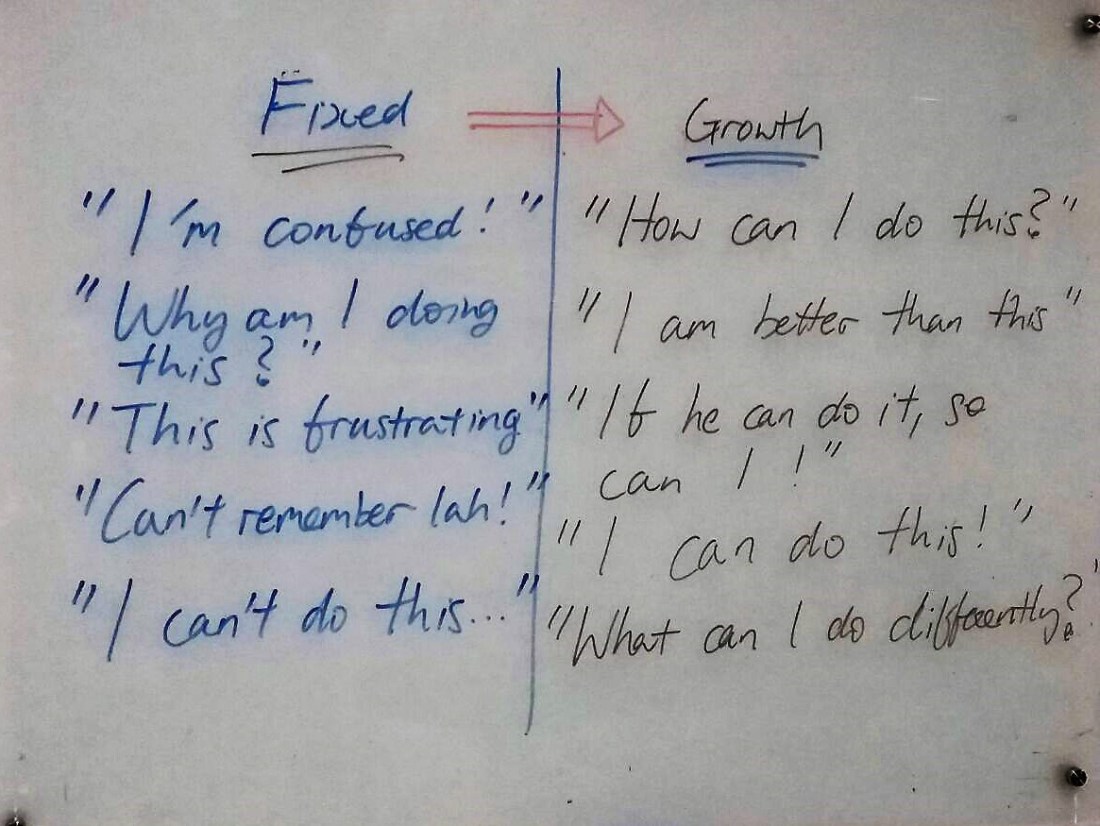 Fixed
"I'm confused!"
"Why am I doing
this?"
"This is frustrating"
"Can't remember lah!"
"I can't do this..."
Growth
"How can I do this?"
"I am better than this"
"If he can do it, so
can I!"
"I can do this!"
"What can I do differently?"